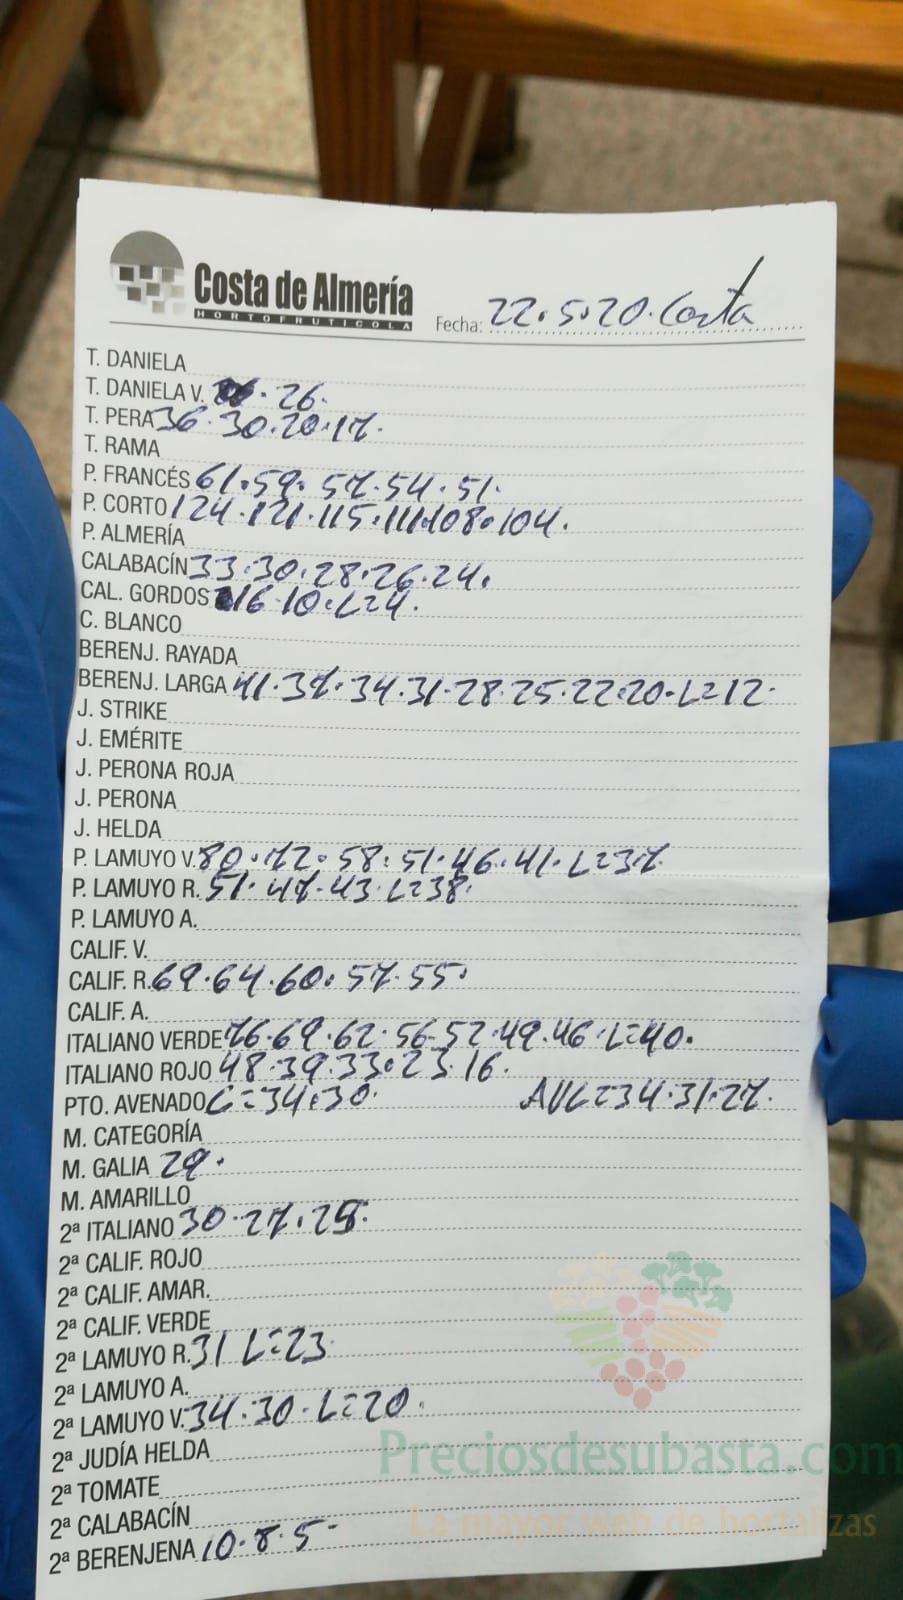 Costa de Almería
HORTOFRUTICOLA
Fecha: 22.5.20. Costa
T. DANIELA
T. DANIELA V. . 26.
T. PERA 36. 30. 20. 17.
T. RAMA
P. FRANCÉS 61. 59. 57. 54. 51.
P. CORTO 124. 121. 115. 111. 108. 104.
P. ALMERÍA
CALABACÍN 33. 30. 28. 26. 24.
CAL. GORDOS 16 10. L=4.
C. BLANCO
BERENJ. RAYADA
BERENJ. LARGA 41. 37. 34. 31. 28. 25. 22. 20. L=12.
J. STRIKE
J. EMÉRITE
J. PERONA ROJA
J. PERONA
J. HELDA
P. LAMUYO V. 80. 72. 58. 51. 46. 41. L=37.
P. LAMUYO R. 51. 47. 43. L=38.
P. LAMUYO A.
CALIF. V.
CALIF. R. 69. 64. 60. 57. 55.
CALIF. A.
ITALIANO VERDE 76. 69. 62. 56. 52. 49. 46. L=40.
ITALIANO ROJO 48. 39. 33. 23. 16.
PTO. AVENADO C=34. 30. AVL=34. 31. 27.
M. CATEGORÍA
M. GALIA 29.
M. AMARILLO
2ª ITALIANO 30. 27. 25.
2ª CALIF. ROJO
2ª CALIF. AMAR.
2ª CALIF. VERDE
2ª LAMUYO R. 31 L=23
2ª LAMUYO A.
2ª LAMUYO V. 34. 30. L=20.
2ª JUDÍA HELDA
2ª TOMATE
2ª CALABACÍN
2ª BERENJENA 10. 8. 5-
Preciosdesubasta.com
La mayor web de hortalizas